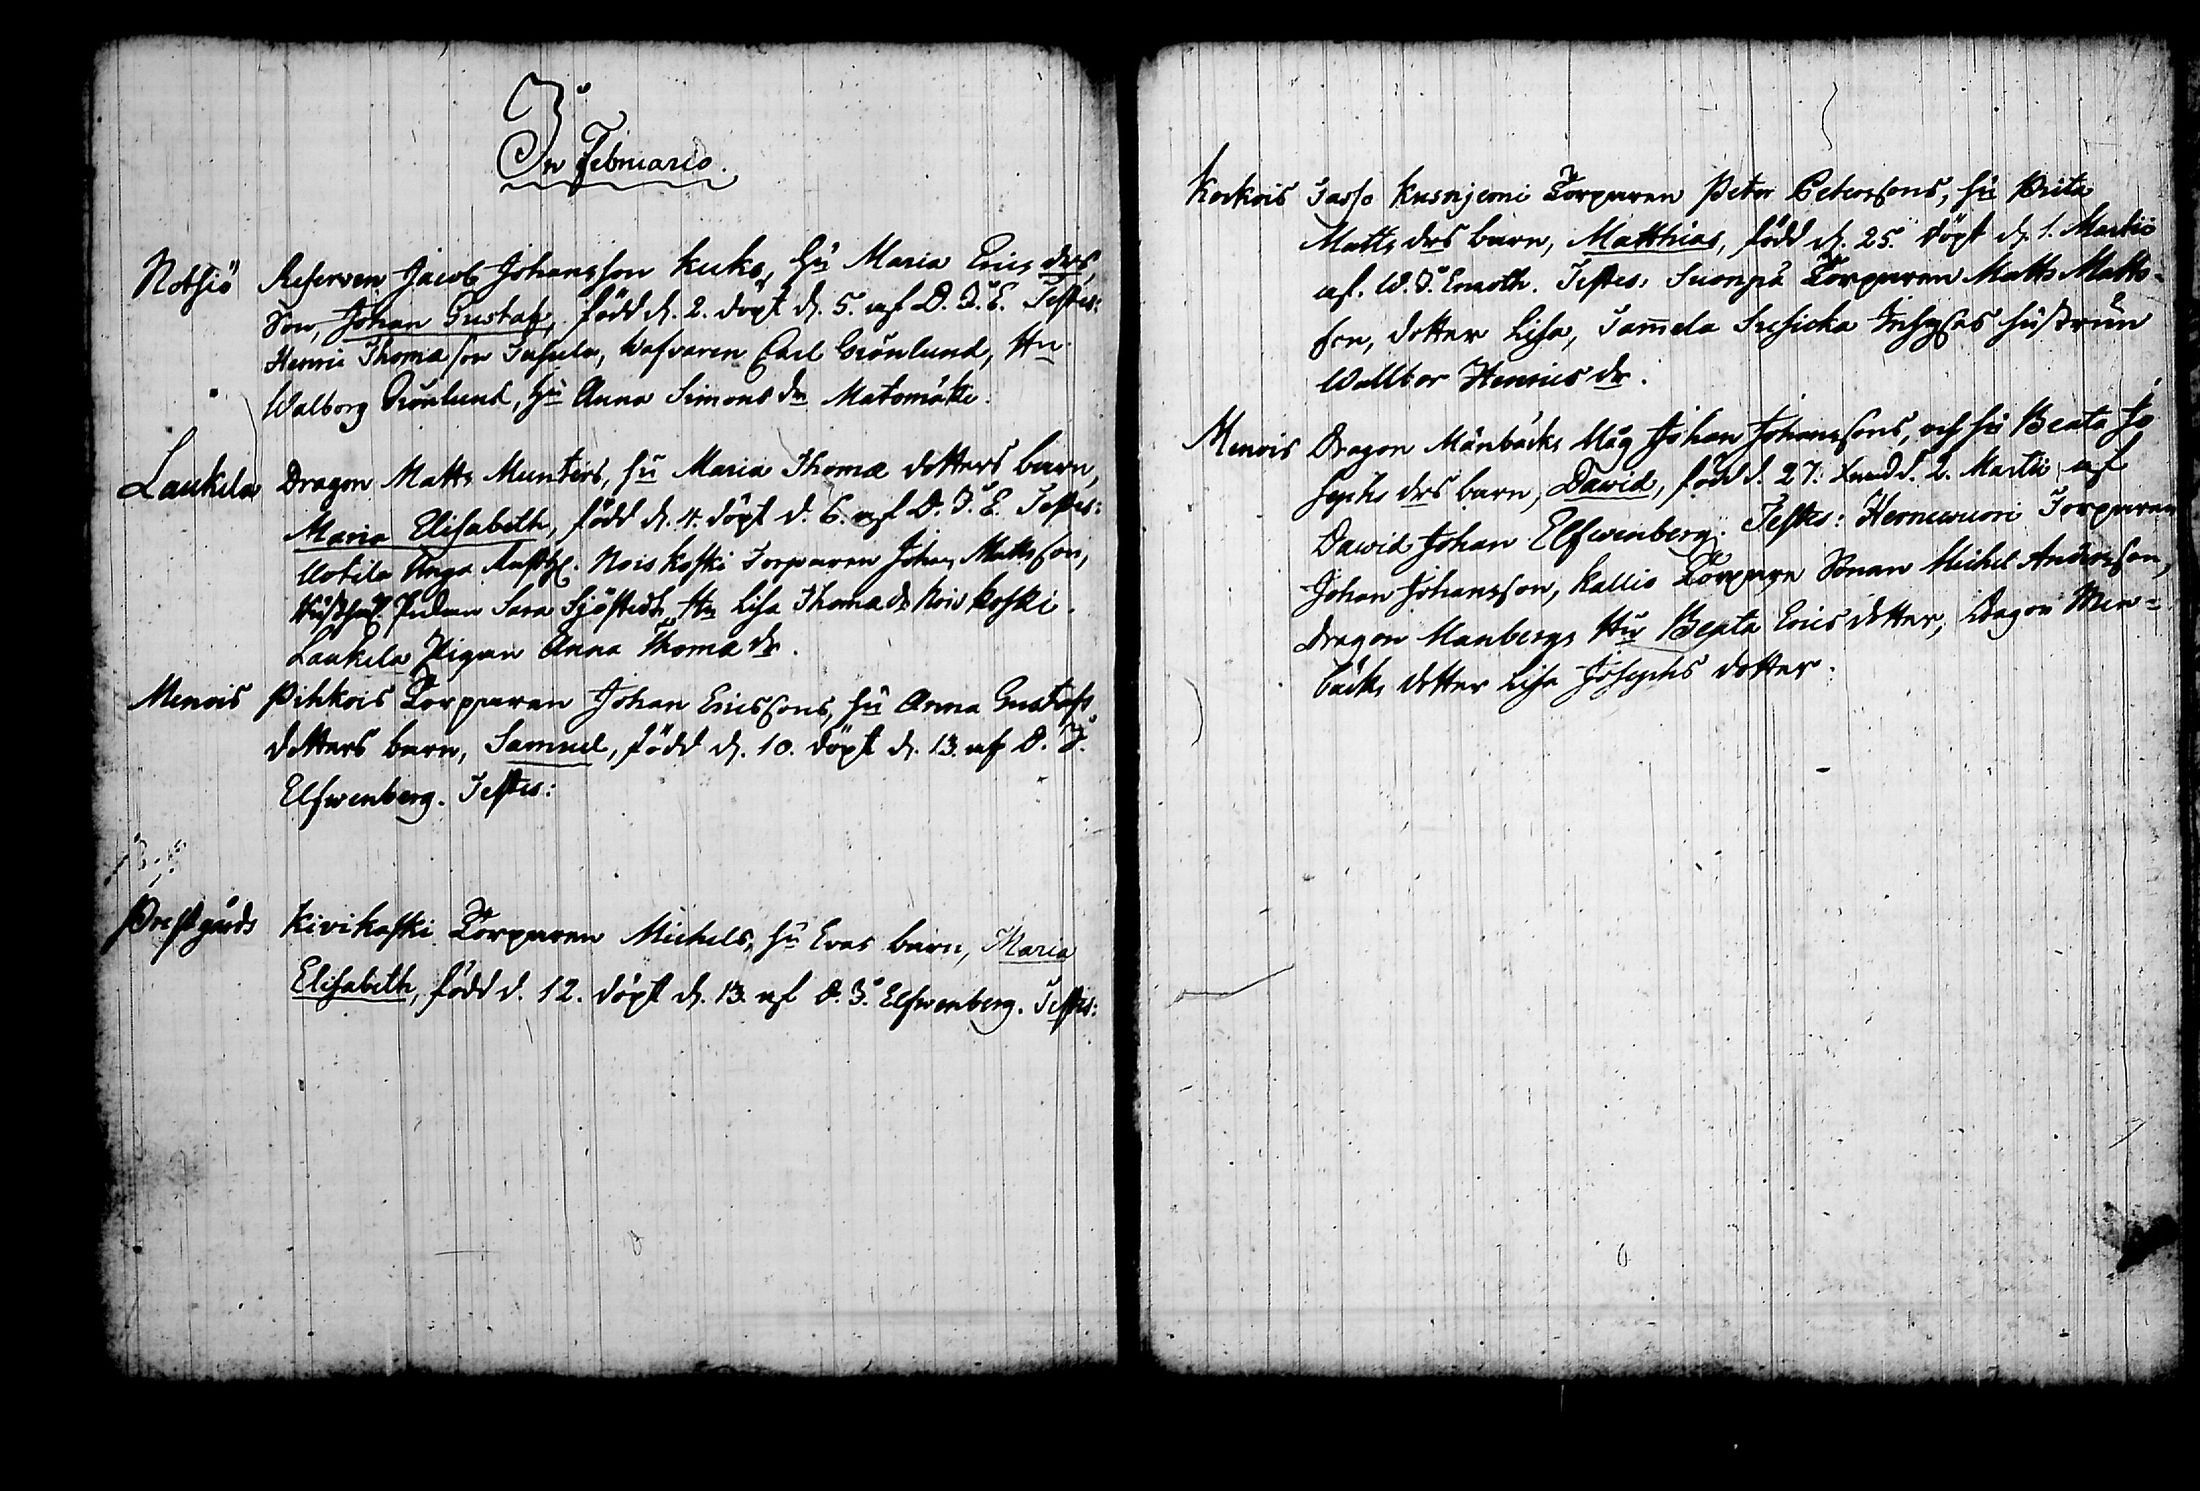 In Februario.
Notsiö Reserven Jacob Johansson Kuke, hu Maria Erics drs,
Son, Johan Gustaf, född d. 2. döpt d. 5. af D. J. E. Testes:
Henric Thomasson Juhala, Wäfvaren Carl Grönlund, Hu
Walborg Grönlund, hu Anna Simons dr Matomäki.
Laukela Dragon Matts Munters, hu Maria Thomæ dotters barn,
Maria Elisabeth, född d. 4. döpt d. 6. af D. J. E. Testes:
Uotila Noiskoski Torparen Johan Mattsson,
Sara Sjöstedt, Hu Lisa Thomæ dr Noiskoski.
Laukela Pigan Anna Thomæ dr.
Menois Pihkois Torparen Johan Ericssons, hu Anna Gustafs
dotters barn, Samuel, född d. 10. döpt d. 13. af D. J.
Elfwenberg. Testes:
Prestgårds Kivikoski Torparen Michels, hu Evas barn, Maria
Elisabeth, född d. 12. döpt d. 13. af D. J. Elfwenberg. Testes:
Korkois Torparen Peter Peterssons, hu Brita
Matts drs barn, Matthias, född d. 25. döpt d. 1. Martii
af. W. J. Testes: Suonpä Torparen Matts Matts-
son, dotter Lisa, Sussicka hustrun
Henrics dr.
Menois Dragon Mänbäcks Måg Johan Johanssons, och hu Beata Jo
sephs drs barn, David, född d. 27. d. 2. Martii af
David Johan Elfwenberg. Testes: Hernewuori Torparen
Johan Johansson, Kallio Torpare Sonan Michel Andersson,
Dragon Manbergs Hu Beata Erics dotter, Dragon Men-
bäcks dotter Lisa Josephs dotter.